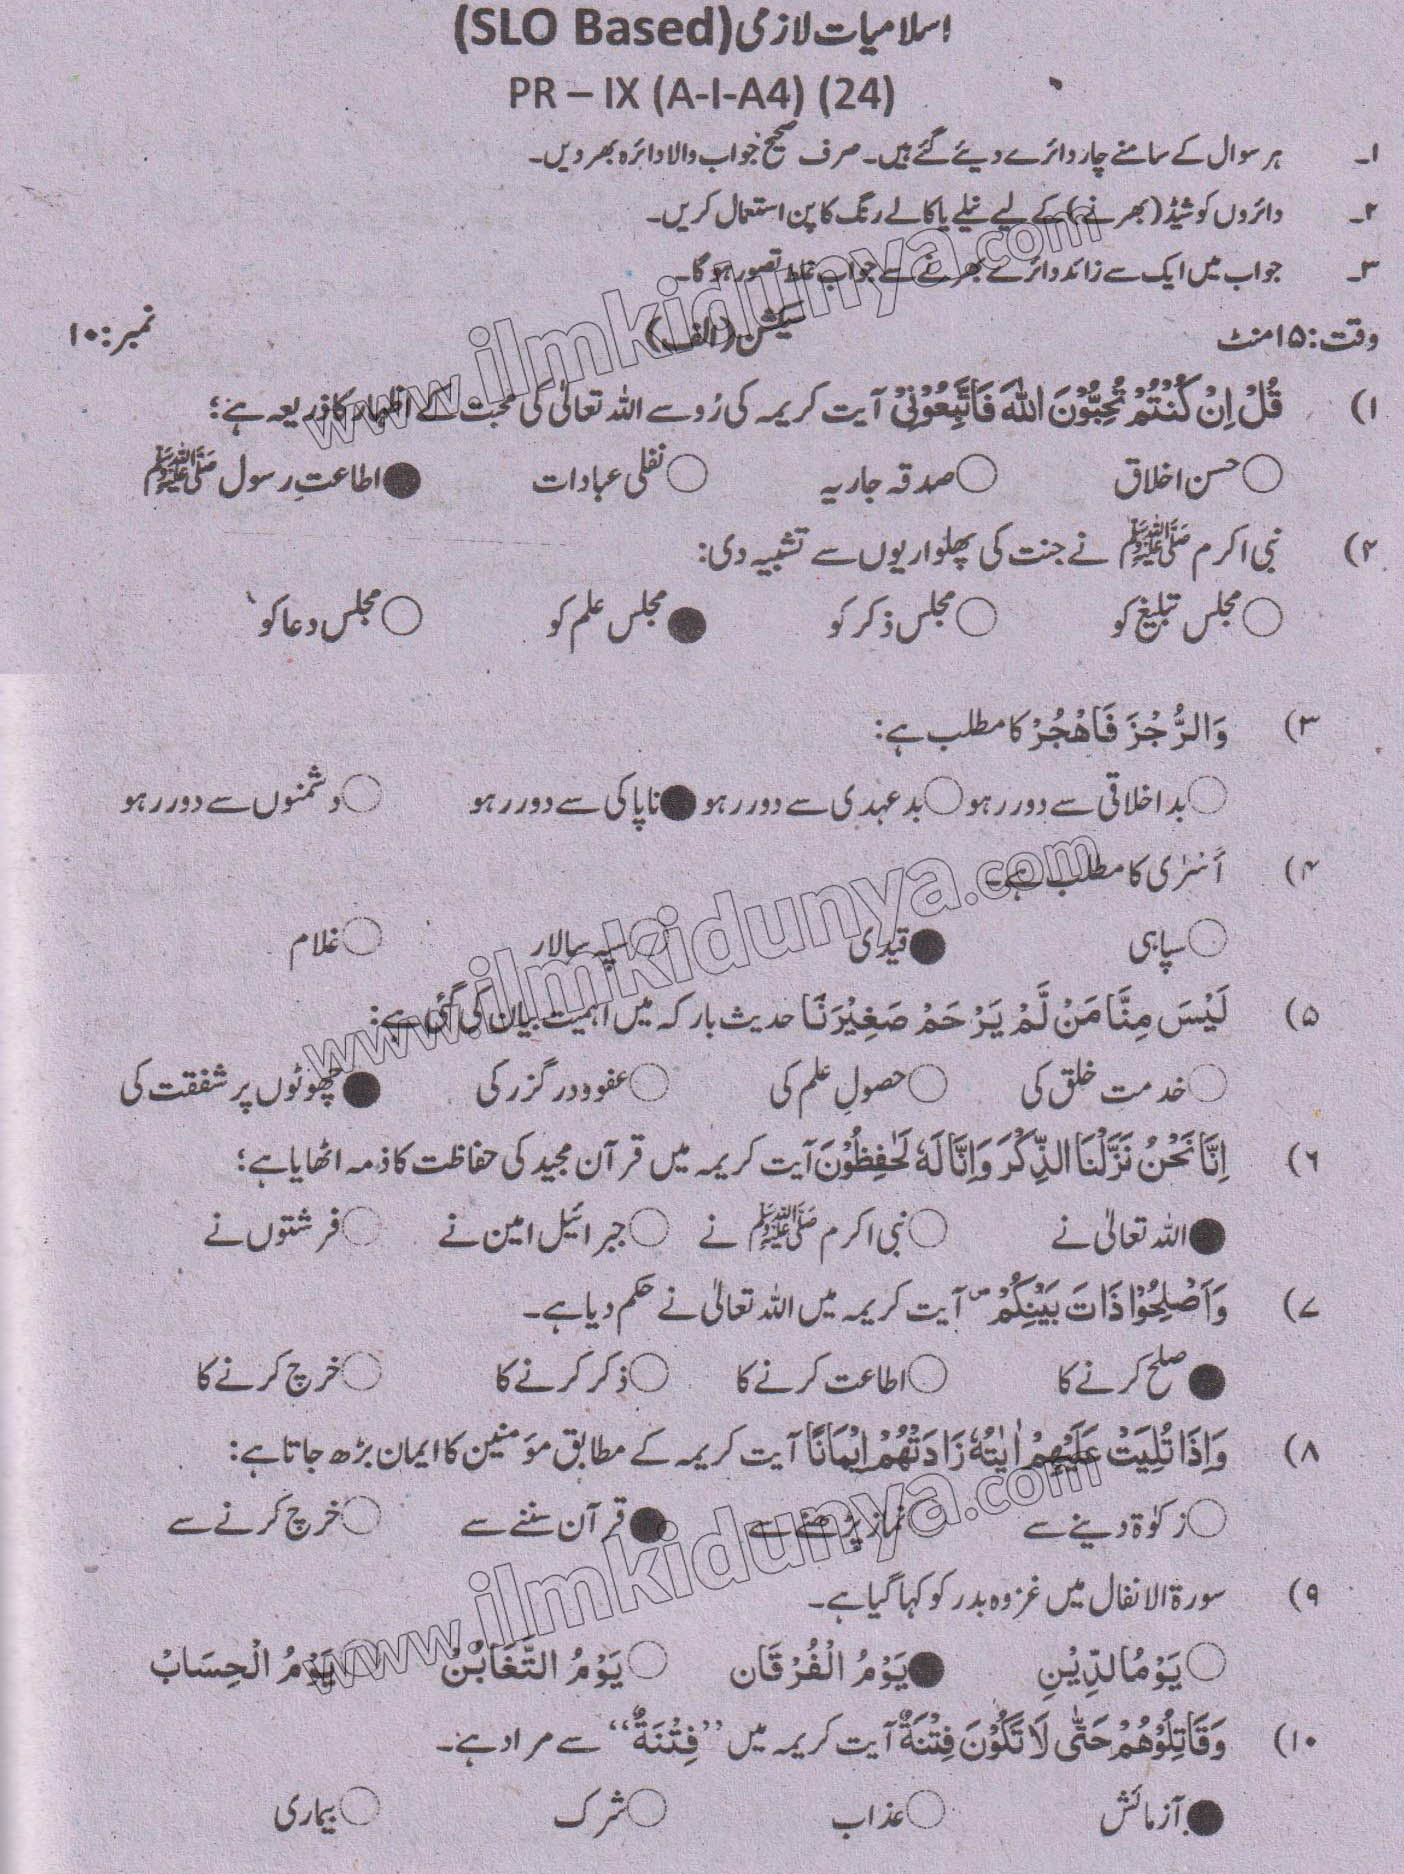 اسلامیات لازمی (SLO Based)
PR – IX (A-I-A4) (24)
۱۔ ہر سوال کے سامنے چار دائرے دیئے گئے ہیں۔ صرف صحیح جواب والا دائرہ بھر دیں۔
۲۔ دائروں کو شیڈ (بھرنے) کے لیے نیلے یا کالے رنگ کا پن استعمال کریں۔
۳۔ جواب میں ایک سے زائد دائرے بھرنے سے جواب غلط تصور ہو گا۔
وقت: ۱۵ منٹ سیکشن (الف) نمبر: ۱۰
۱) قُلْ اِنْ كُنْتُمْ تُحِبُّوْنَ اللّٰهَ فَاتَّبِعُوْنِیْ آیت کریمہ کی رُو سے اللہ تعالیٰ کی محبت کے اظہار کا ذریعہ ہے؛
حسن اخلاق صدقہ جاریہ نفلی عبادات اطاعتِ رسول ﷺ
۲) نبی اکرم ﷺ نے جنت کی پھلواریوں سے تشبیہ دی:
مجلس تبلیغ کو مجلس ذکر کو مجلس علم کو مجلس دعا کو
۳) وَالرُّجْزَ فَاهْجُرْ کا مطلب ہے:
بد اخلاقی سے دور رہو بد عہدی سے دور رہو ناپاکی سے دور رہو دشمنوں سے دور رہو
۴) اَسْرٰی کا مطلب ہے۔
سپاہی قیدی سپہ سالار غلام
۵) لَيْسَ مِنَّا مَنْ لَّمْ يَرْحَمْ صَغِيْرَنَا حدیث بارکہ میں اہمیت بیان کی گئی ہے:
خدمت خلق کی حصولِ علم کی عفو و درگزر کی چھوٹوں پر شفقت کی
۶) اِنَّا نَحْنُ نَزَّلْنَا الذِّكْرَ وَاِنَّا لَهٗ لَحٰفِظُوْنَ آیت کریمہ میں قرآن مجید کی حفاظت کا ذمہ اٹھایا ہے؛
اللہ تعالیٰ نے نبی اکرم ﷺ نے جبرائیل امین نے فرشتوں نے
۷) وَاَصْلِحُوْا ذَاتَ بَيْنِكُمْ ۪ آیت کریمہ میں اللہ تعالیٰ نے حکم دیا ہے۔
صلح کرنے کا اطاعت کرنے کا ذکر کرنے کا خرچ کرنے کا
۸) وَاِذَا تُلِيَتْ عَلَيْهِمْ اٰيٰتُهٗ زَادَتْهُمْ اِيْمَانًا آیت کریمہ کے مطابق مؤمنین کا ایمان بڑھ جاتا ہے:
زکوٰۃ دینے سے نماز پڑھنے سے قرآن سننے سے خرچ کرنے سے
۹) سورۃ الانفال میں غزوہ بدر کو کہا گیا ہے۔
يَوْمُ الدِّيْنِ يَوْمُ الْفُرْقَان يَوْمُ التَّغَابُنْ يَوْمُ الْحِسَابْ
۱۰) وَقَاتِلُوْهُمْ حَتّٰى لَا تَكُوْنَ فِتْنَةٌ آیت کریمہ میں ’’فِتْنَةٌ‘‘ سے مراد ہے۔
آزمائش عذاب شرک بیماری
www.ilmkidunya.com
www.ilmkidunya.com
www.ilmkidunya.com